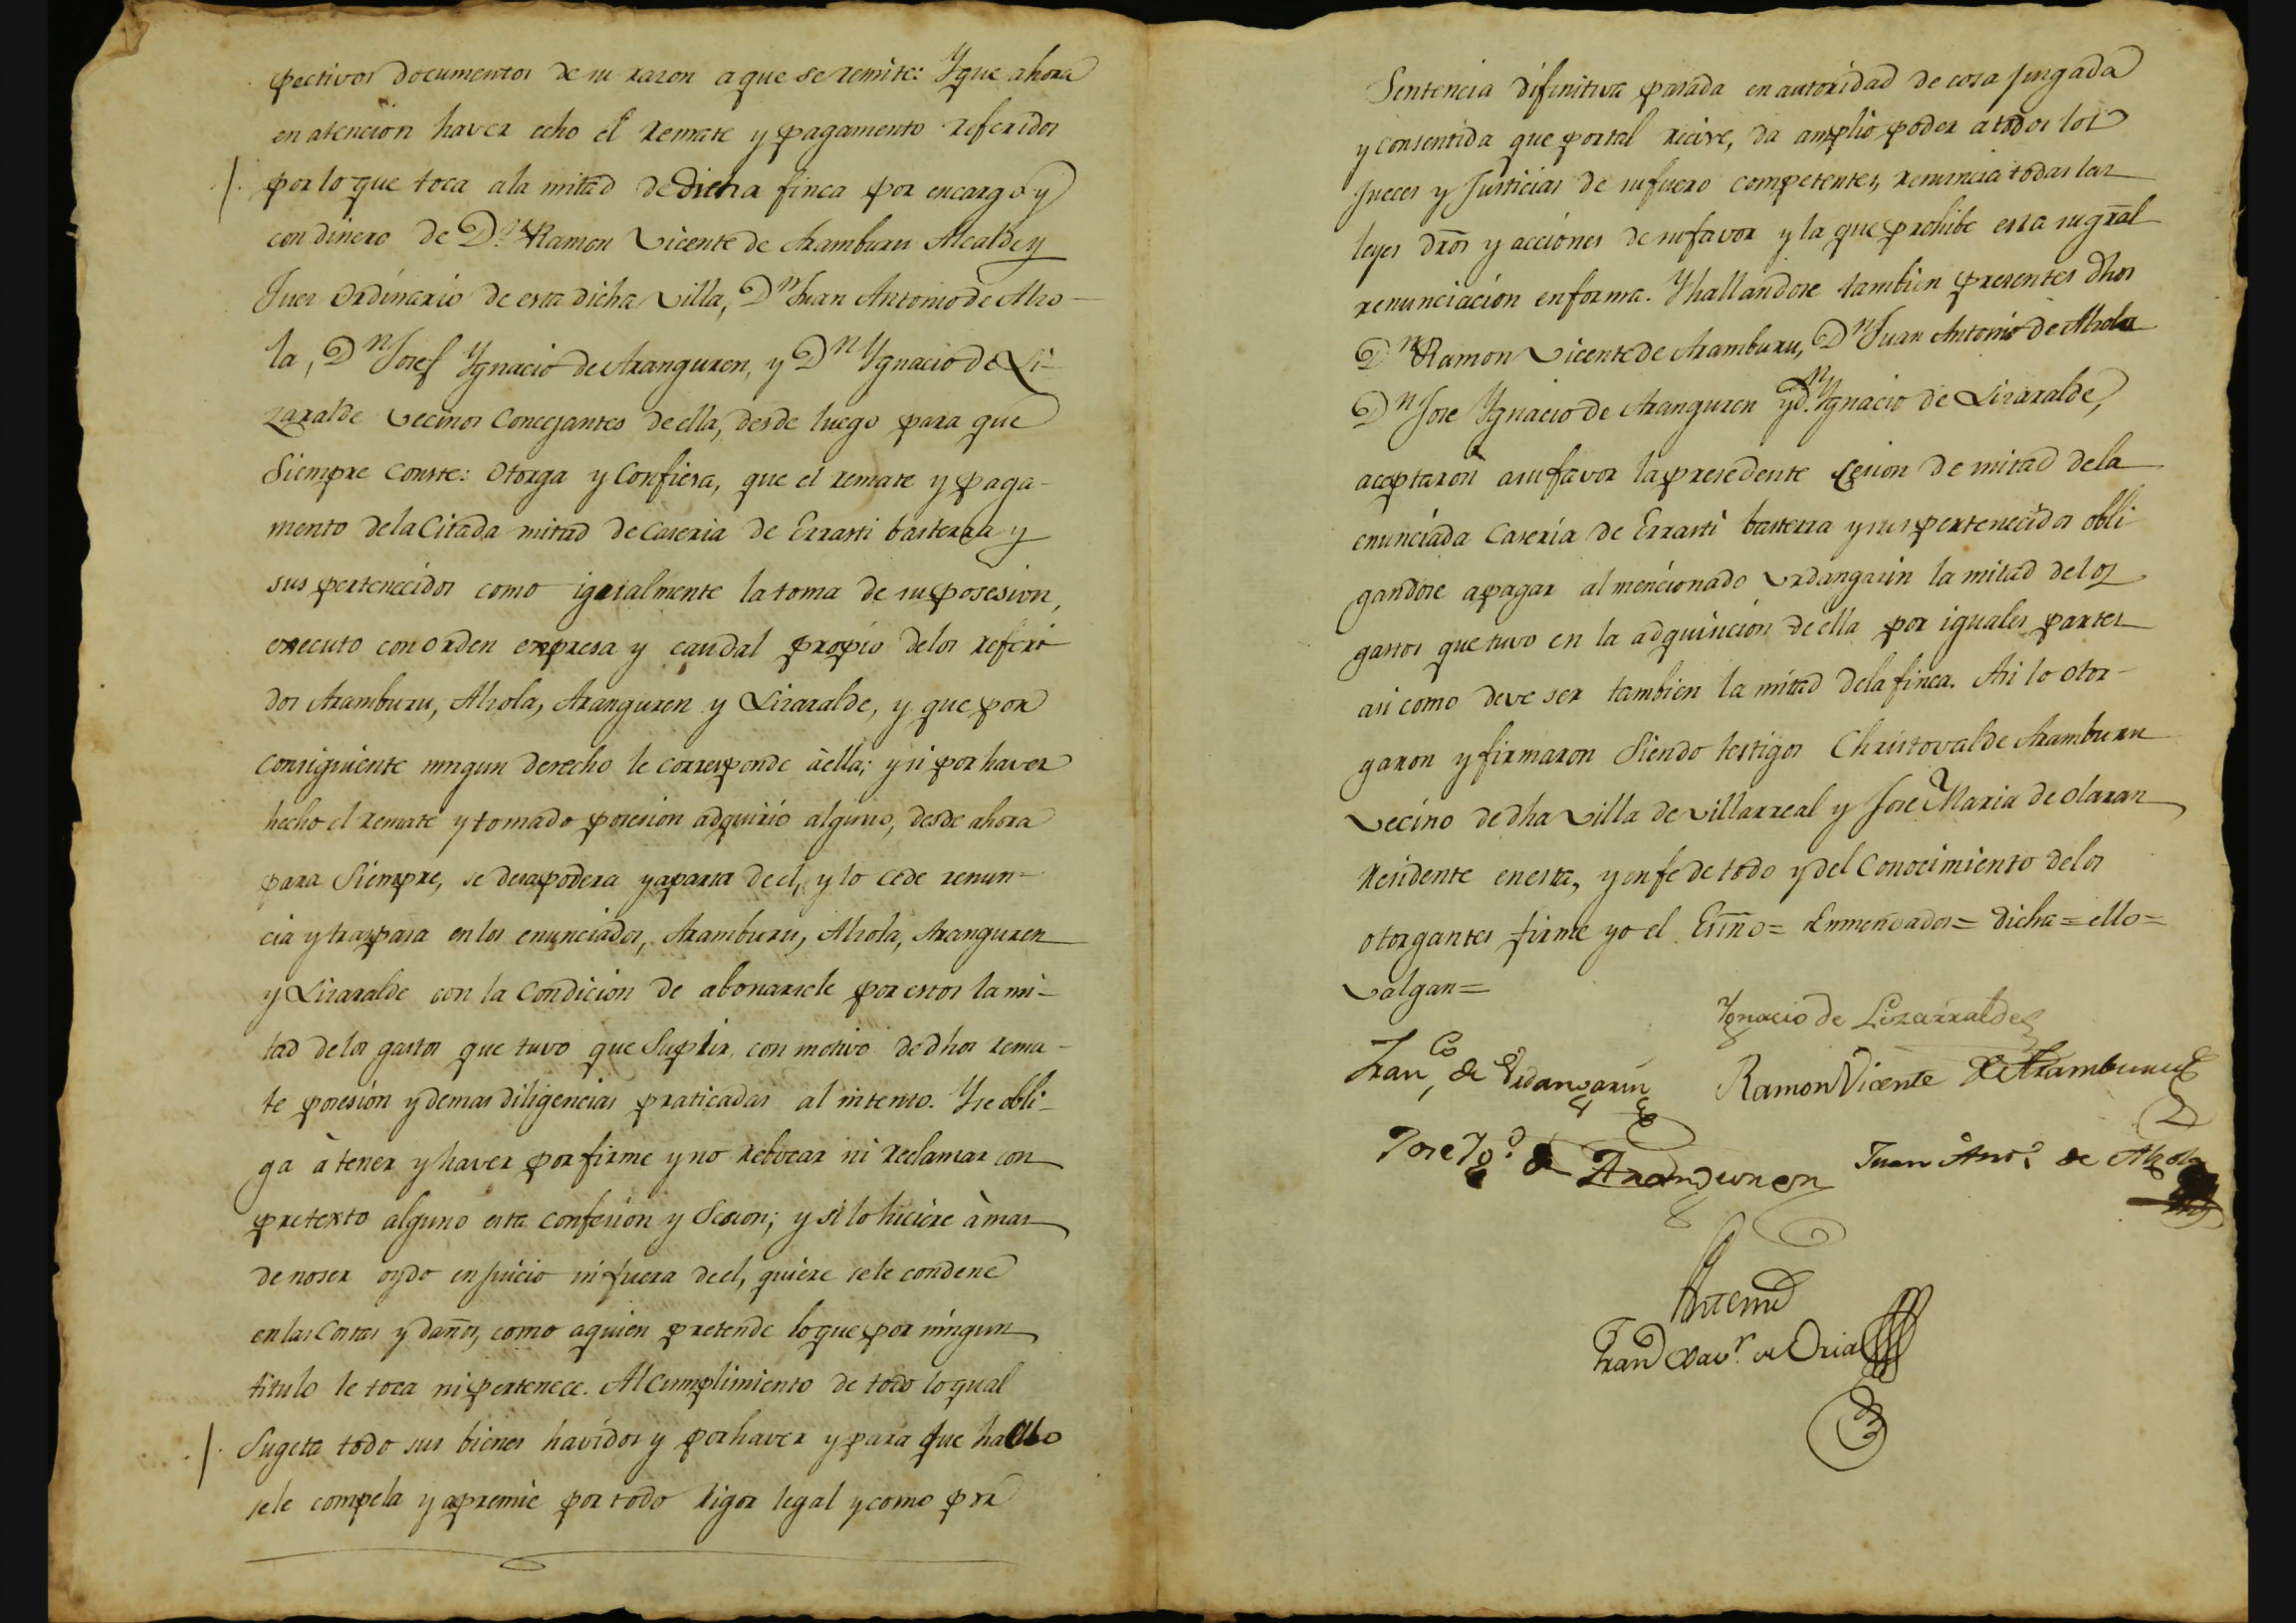 pectivos documentos de su razon a que se remite: Y que ahora
en atencion haver echo el remate y pagamento referidos
por lo que toca ala mitad de dicha finca por encargo y
con dinero de Dn. Ramon Vicente de Aramburu Alcalde y
Juez Ordinario de esta dicha Villa, Dn Juan Antonio de Alzo-
la, Dn Josef Ygnacio de Aranguren, y Dn Ygnacio de Li-
zaralde vecinos Concejantes de ella, desde luego para que
Siempre conste: Otorga y Confiesa, que el remate y paga-
mento dela Citada mitad de Caseria de Errasti basterra y
sus pertenecidos como igualmente la toma de su posesion,
executo con orden expresa y caudal propio delos referi
dos Aramburu, Alzola, Aranguren y Lizaralde, y que por
consiguiente ningun derecho le corresponde à ella; y si por haver
hecho el remate y tomado posesion adquirió alguno, desde ahora
para Siempre, se desapodera y aparta de el, y lo cede renun-
cia y traspasa en los enunciados, Aramburu, Alzola, Aranguren
y Lizaralde con la Condicion de abonarsele por estos la mi-
tad delos gastos que tuvo que Suplir, con motivo de dhos rema-
te posesion y demas diligencias praticadas al intento. Y se obli-
ga à tener y haver por firme y no rebocar ni reclamar con
pretexto alguno esta confesion y Sesion; y si lo hiciere à mas
de no ser oydo en juicio ni fuera de el, quiere se le condene
en las Costas y daños, como aquien pretende lo que por ningun
titulo le toca ni pertenece. Al cumplimiento de todo lo qual
Sugeta todo sus bienes havidos y por haver y para que ha ello
se le compela y apremie por todo rigor legal y como por
Sentencia difinitiva pasada en autoridad de cosa juzgada
y consentida que por tal recive, da amplio poder a todos los
Jueces y Justicias de su fuero competentes, renuncia todas las
leyes dros y acciones de su favor y la que prohibe esta su gral
renunciacion en forma. Y hallandose tambien presentes dhos
Dn Ramon Vicente de Aramburu, Dn Juan Antonio de Alzola
Dn Jose Ygnacio de Aranguren y Dn Ygnacio de Lizaralde,
aceptaron a su favor la presedente Cesion de mitad dela
enunciada Caseria de Errasti basterra y sus pertenecidos obli
gandose a pagar al mencionado Urdangarin la mitad delos
gastos que tuvo en la adquisicion de ella por iguales partes
asi como deve ser tambien la mitad dela finca. Asi lo otor-
garon y firmaron Siendo testigos Christoval de Aramburu
vecino de dha Villa de Villarreal y Jose Maria de Olaran
residente en esta, y en fe de todo y del Conocimiento delos
otorgantes firme yo el Esno= Enmendados= dicha= ello=
valgan=
Ygnacio de Lizarralde
Franco de Urdangarin Ramon Vicente de Aramburu
Jose Ygo. de Aranguren Juan Anto. de Alzola
Antemi
Franco Xavr. de Oria